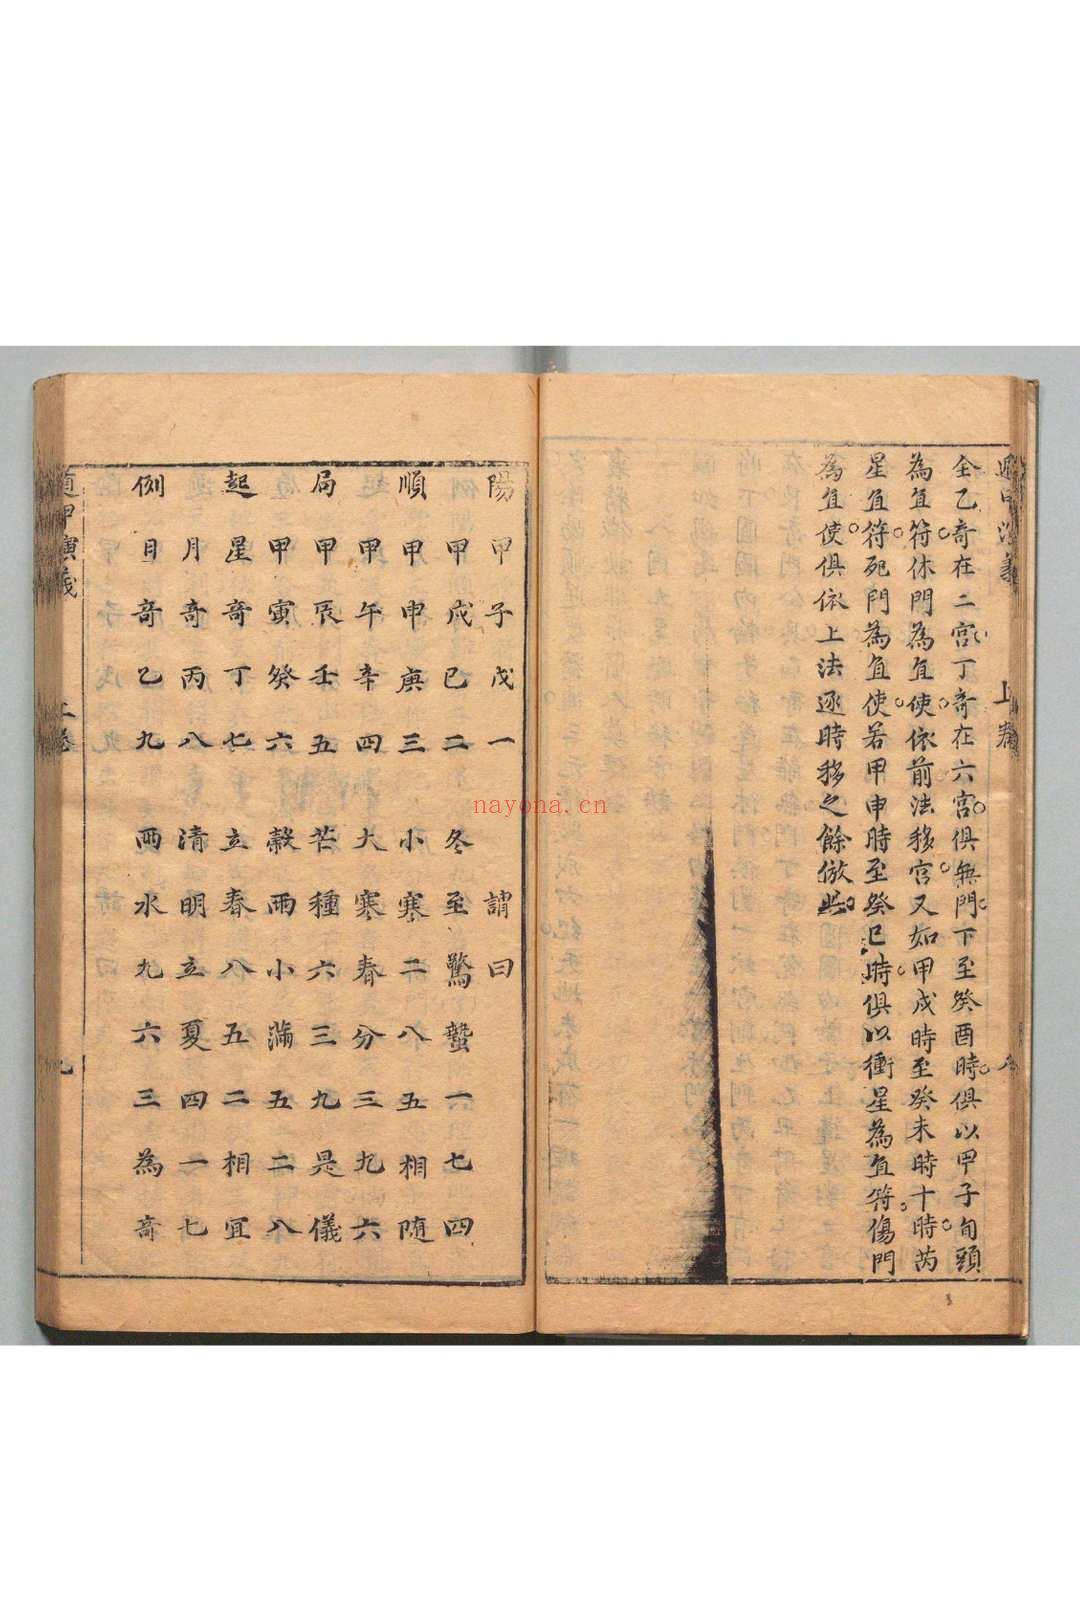 遁甲演義 上卷 八
全乙奇在二宮丁奇在六宮俱無門下至癸酉時俱以甲子旬頭
為直符休門為直使依前法移宮又如甲戌時至癸未時十時芮
星直符死門為直使若甲申時至癸巳時俱以衝星為直符傷門
為直使俱依上法逐時移之餘倣此
陽甲子戊一 謂曰
甲戌己二 冬至驚蟄一七四
順甲申庚三 小寒二八五相随
甲午辛四 大寒春分三九六
局甲辰壬五 芒種六三九是儀
甲寅癸六 穀雨小滿五二八
起星奇丁七 立春八五二相宜
月奇丙八 清明立夏四一七
例日奇乙九 雨水九六三為奇
遁甲演義 上卷 九
nayona.cn